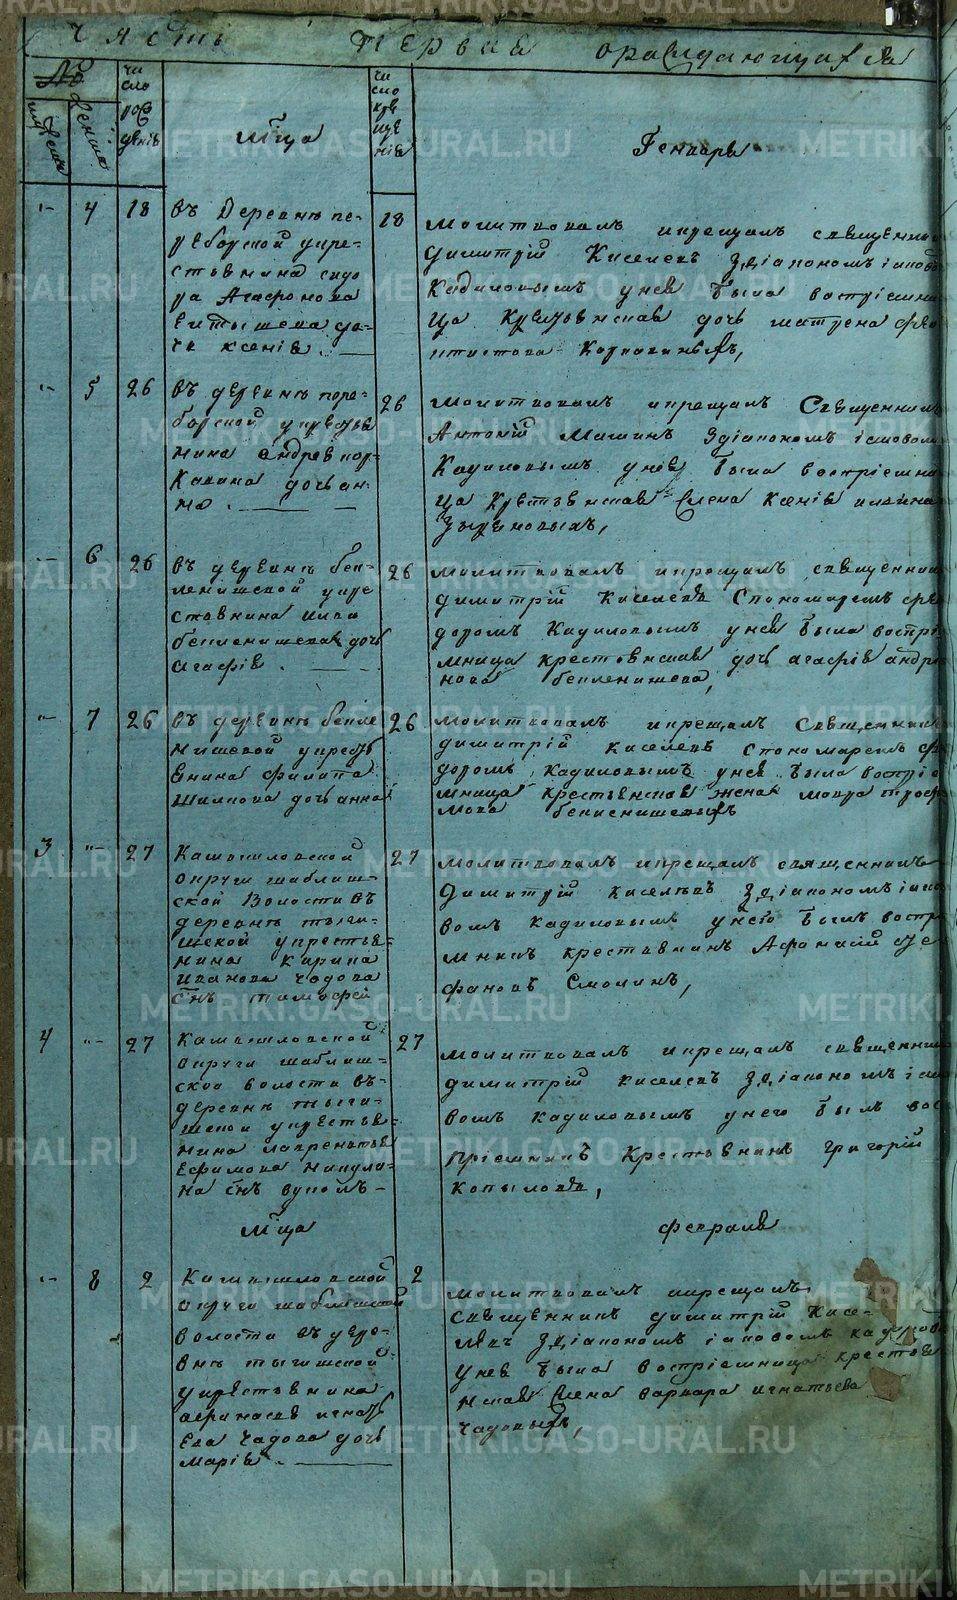 Часть Первая ораждающихся
№
число рождения
Мца
число крещения
Генварь
4 18 въ Деревне пе-
реборской укре-
стьянина сидо-
ра Агафонова
дочь ксения.
18 Молитвовалъ икрещалъ священникъ
Димитрий Киселевъ Здiакономъ iаково
Кадиловымъ унея была востриемни
ца Крестьянская дочь матрена
5 26 въ деревне пере-
борской укрестья
нина андрея кор-
кавина дочь ан-
на.
26 Молитвовалъ икрещалъ Священникъ
Антонiй Здiакономъ iаковомъ
Кадиловымъ унея была востриемни
ца Крестьянская Жена Ксения
Зыряновыхъ,
6 26 въ деревне бек-
ленишевской укре
стьянина
бекленишева дочь
Агафия.
26 молитвовалъ икрещалъ священникъ
димитрiй Киселевъ Спономаремъ фео
доромъ Кадиловымъ унея была востри
мница крестьянская дочь агафия андрiя
нова бекленишева,
7 26 въ деревне бекле
нишевой укресть
янина филипа
Шилкова дочь анна
26 молитвовалъ икрещалъ Священникъ
димитрiй киселевъ Спономаремъ фео
доромъ кадиловымъ унея была востриe
мница крестьянская жена мавра
бекленишевыхъ
3 27 Камышловской
округи шаблиш-
ской Волости въ
деревне тыги-
шской укрестья-
нина Карпа
Иванова Чадова
Снъ тимофей
27 молитвовалъ икрещалъ священникъ
Димитрiй киселевъ Здiакономъ iако
вомъ кадиловымъ унего былъ востри
мникъ крестьянинъ Афанасий Сте
фановъ Смолинъ,
4 27 Камышловской
округи шаблиш-
ской волости въ
деревне тыги-
шской укрестья-
нина лаврентья
Ефимова Никули-
на Снъ вуколъ
27 молитвовалъ икрещалъ священникъ
димитрiй киселевъ Здiакономъ iако
вомъ кадиловымъ унего былъ вос
приемникъ Крестьянинъ григорий
копыловъ,
Мца Февраля
8 2 Камышловской
округи шаблишской
волости въ дере-
вне тыгишской
укрестьянина
афанасья игнать
ева Чадова дочь
мария.
2 молитвовалъ икрещалъ
священникъ димитрiй Кисе-
левъ Здiакономъ iаковомъ кадилово
унея была востриемница крестья
нская Жена варвара игнатьева
Чадовыхъ,
METRIKI.GASO-URAL.RU